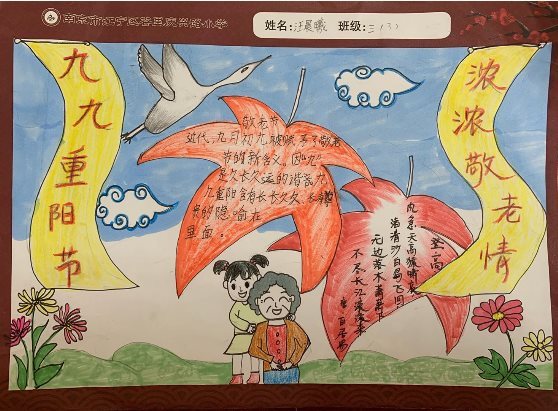 姓名：汪晨曦 班级：三（3）
九九重阳节
浓浓敬老情
敬老节
近代，九月初九被赋予了敬老
节的新含义。因"九
是久长久远的谐音，九
九重阳含有长长久久、
的隐喻在
里面。
登高
风急天高猿啸哀
渚清沙白鸟飞回
无边落木萧萧下
不尽长江滚滚来